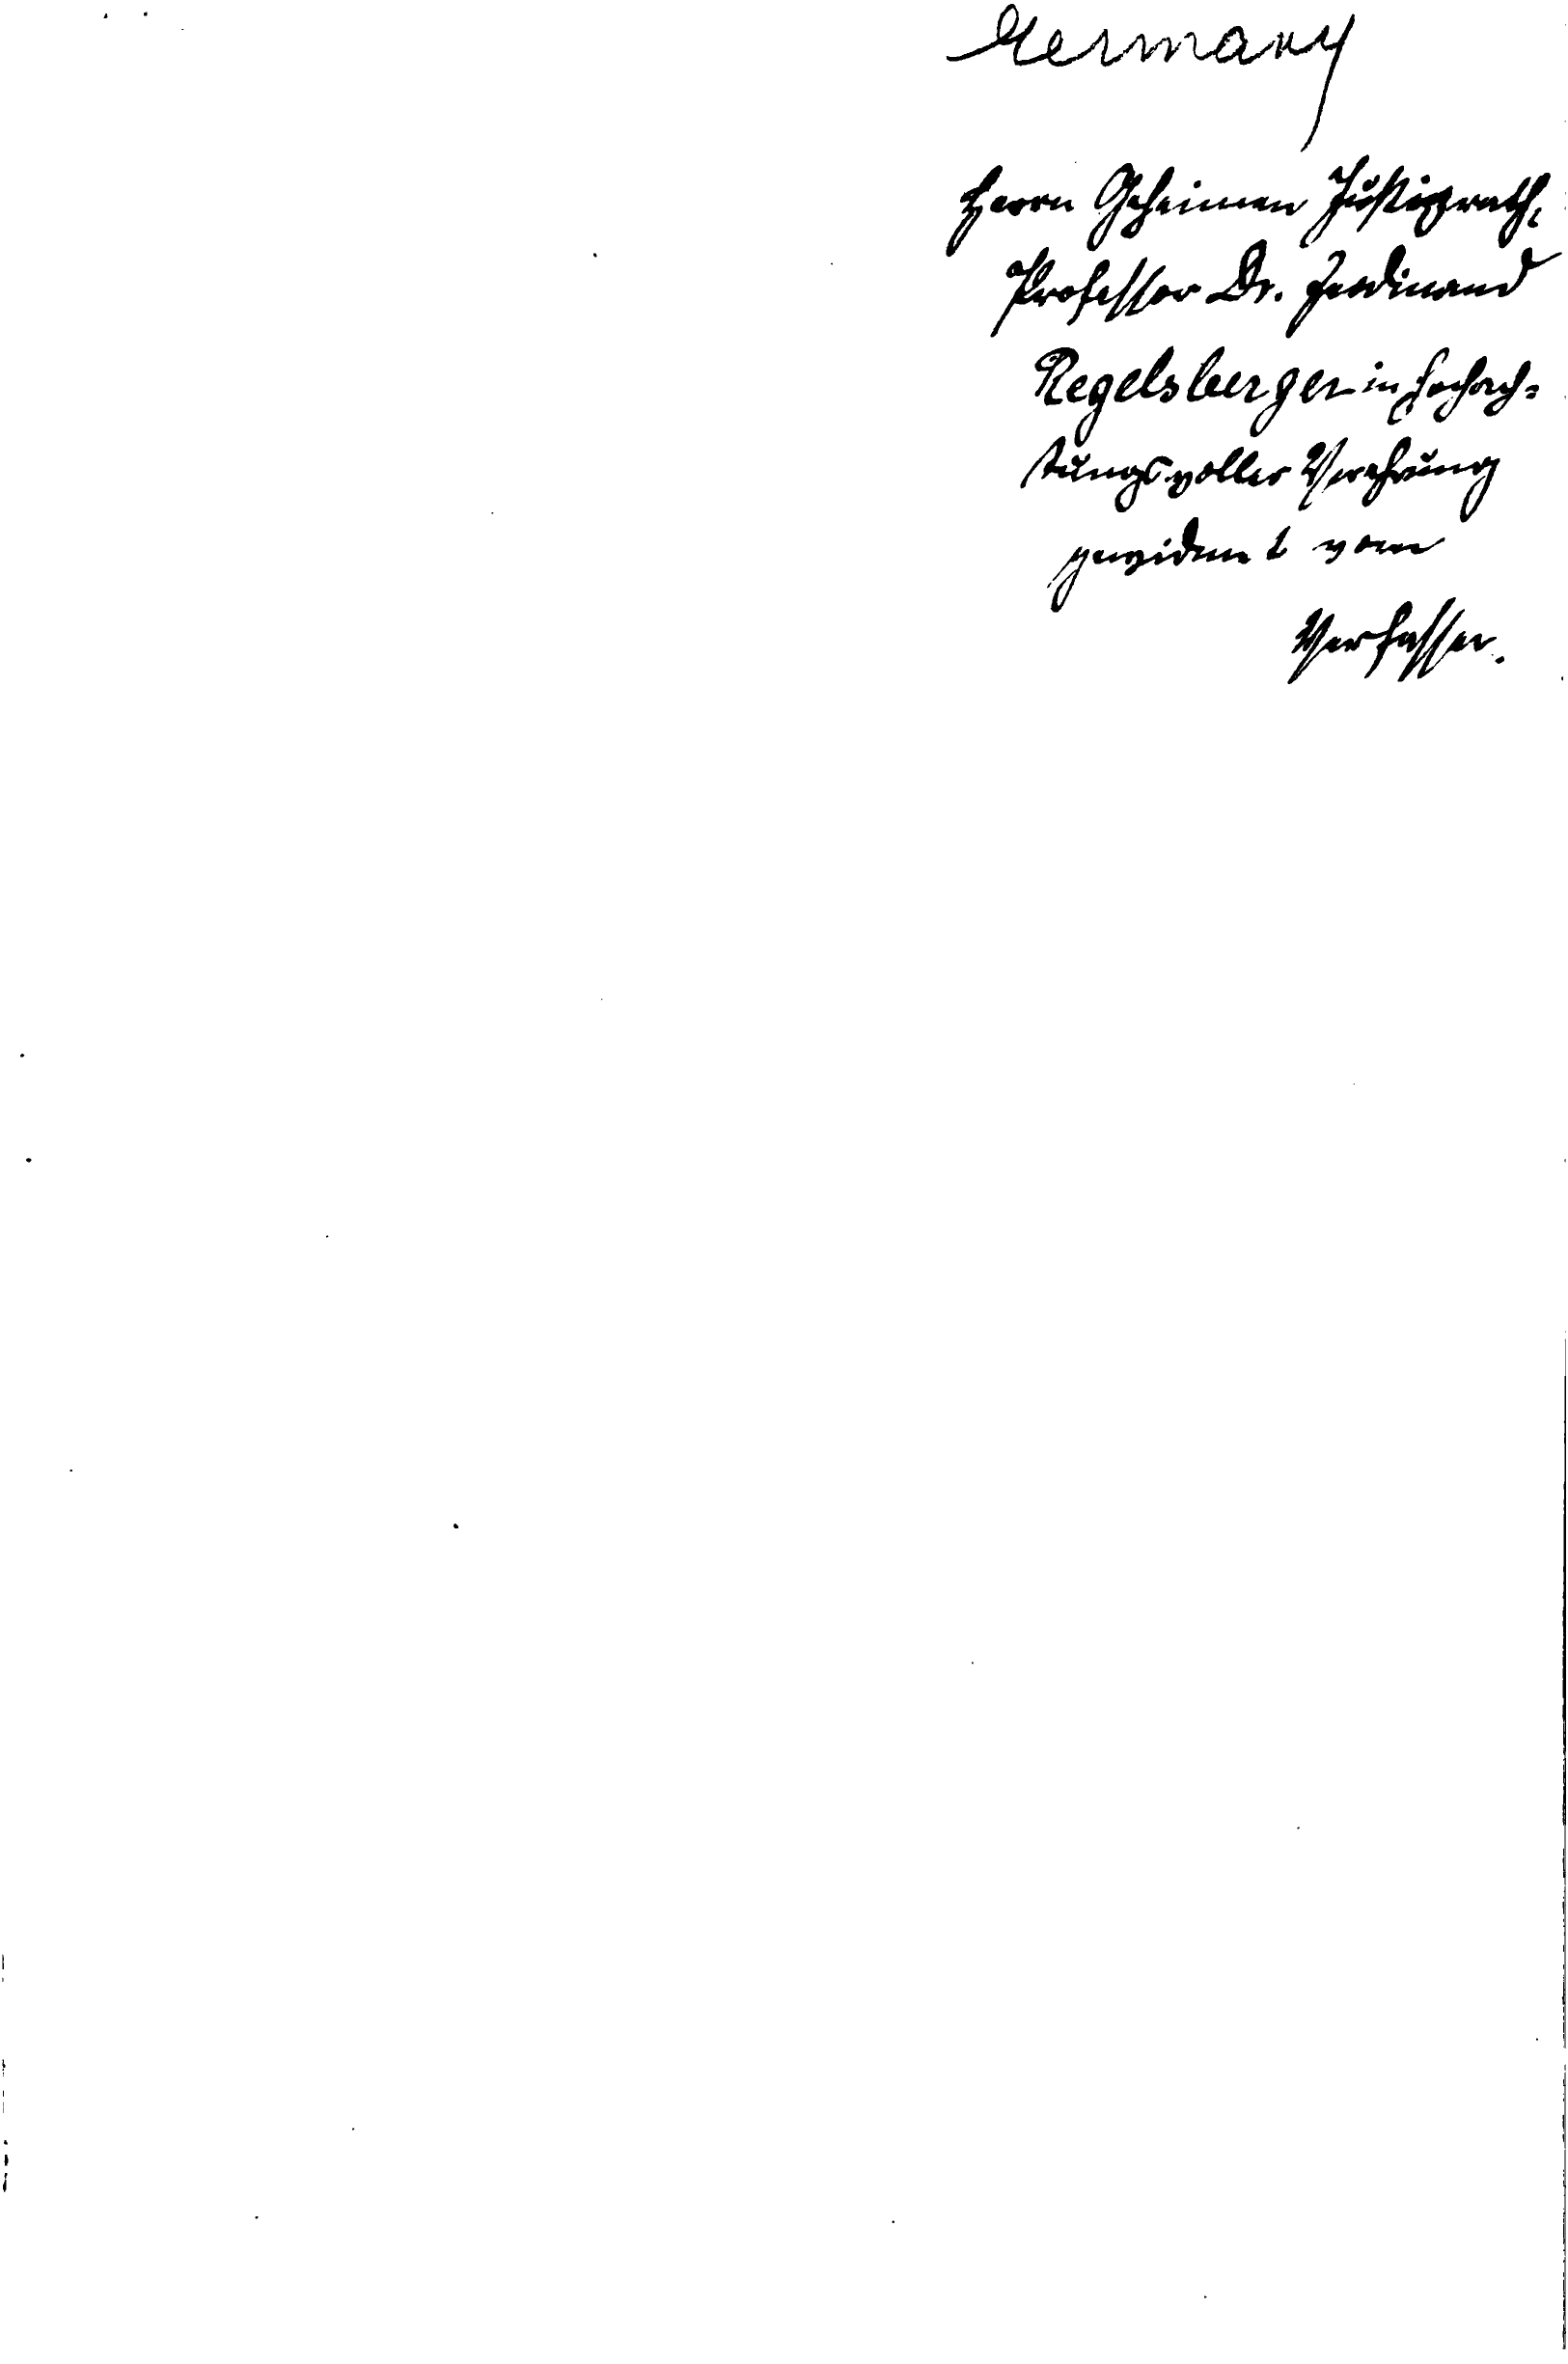 Germany
Herrn Geheimen Justizrath,
Professor Dr. Ferdinand
Regelsberger in hochach-
tungsvoller Verehrung
gewidmet vom
Verfasser.